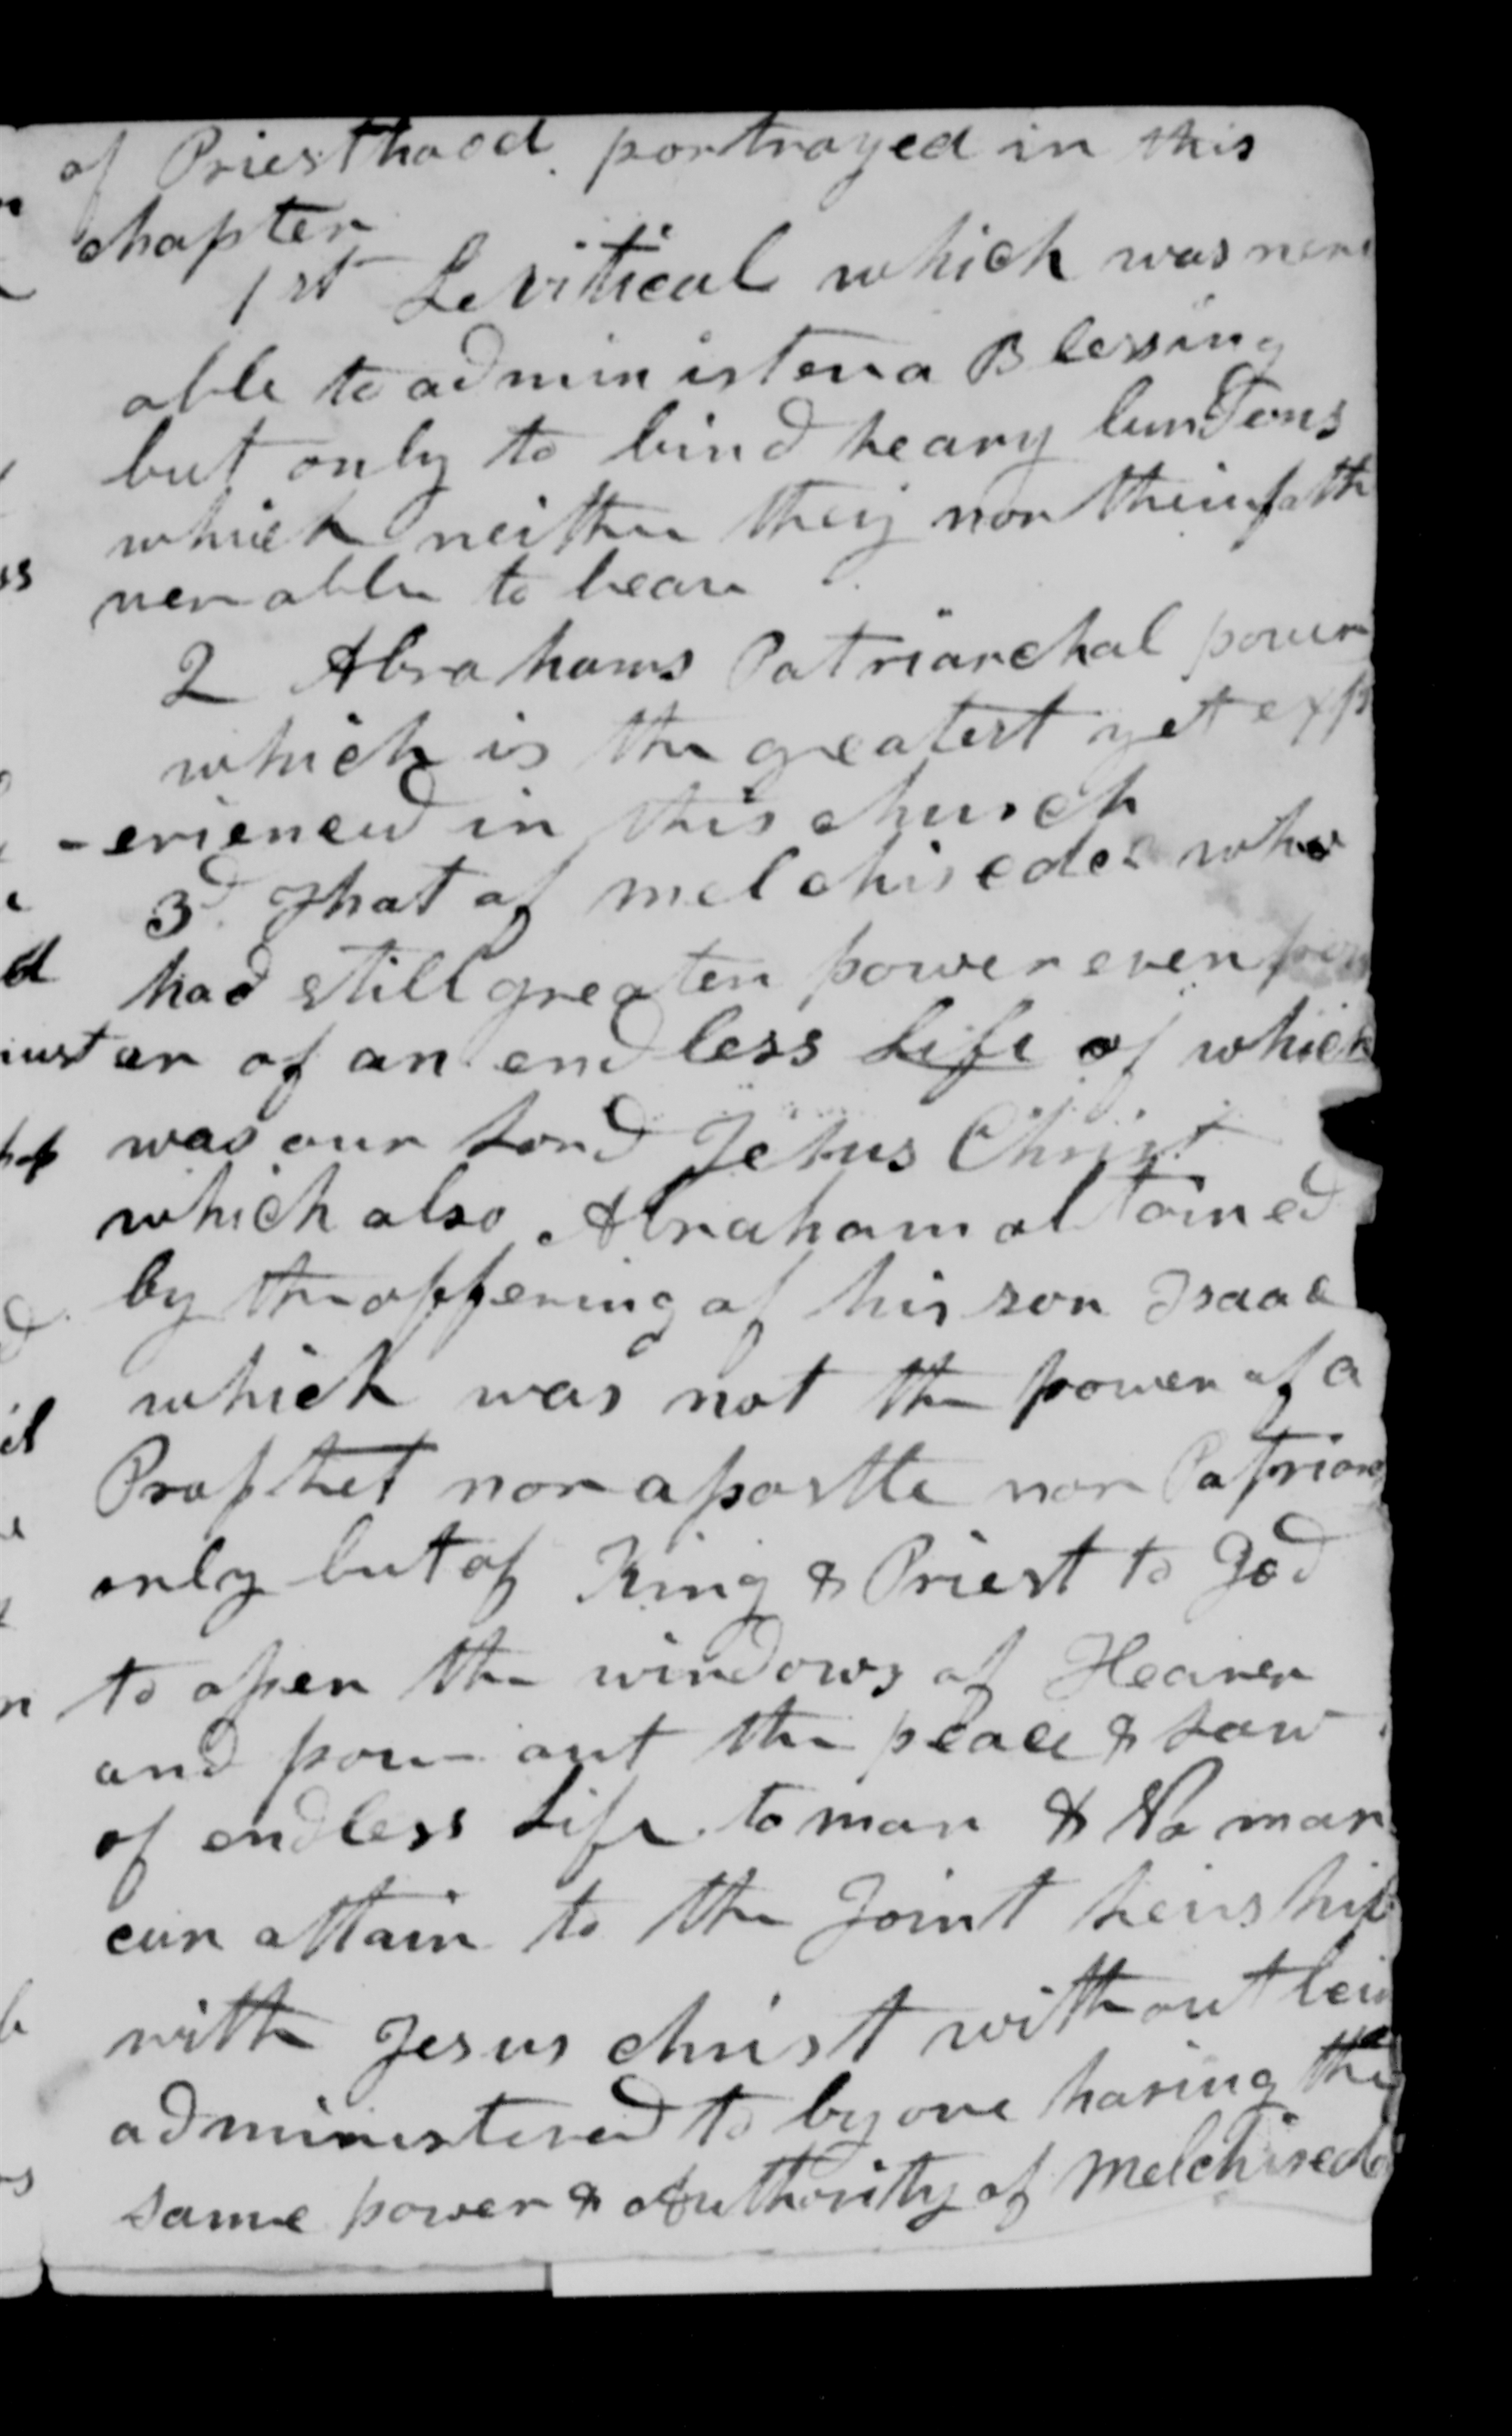 of Priesthood. portrayed in this
chapter
1st Levitical which was never
able to administer a Blessing
but only to bind heavy burdens
which neither they nor their fath
wer able to bear
2 Abrahams Patriarchal power
which is the greatest yet exp
-erienced in this church
3d. That of melchisedec who
had still greater power even pow
er of an endless Life of which
was our Lord Jesus Christ
which also Abraham obtained
by the offering of his son Isaac
which was not the power of a
Prophet nor apostle nor Patriarch
only but of King & Priest to God
to open the windows of Heaven
and pour out the peace & Law
of endless Life to man & No man
can attain to the Joint heirship
with Jesus Christ without bein
administered to by one having the
same power & Authority of Melchisedec